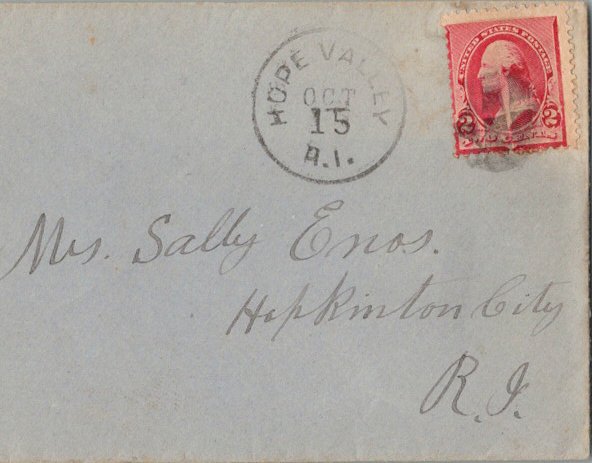 HOPE VALLEY
OCT
15
R.I.
UNITED STATES POSTAGE
2 2
TWO CENTS
Mrs. Sally Enos.
Hopkinton City
R.I.